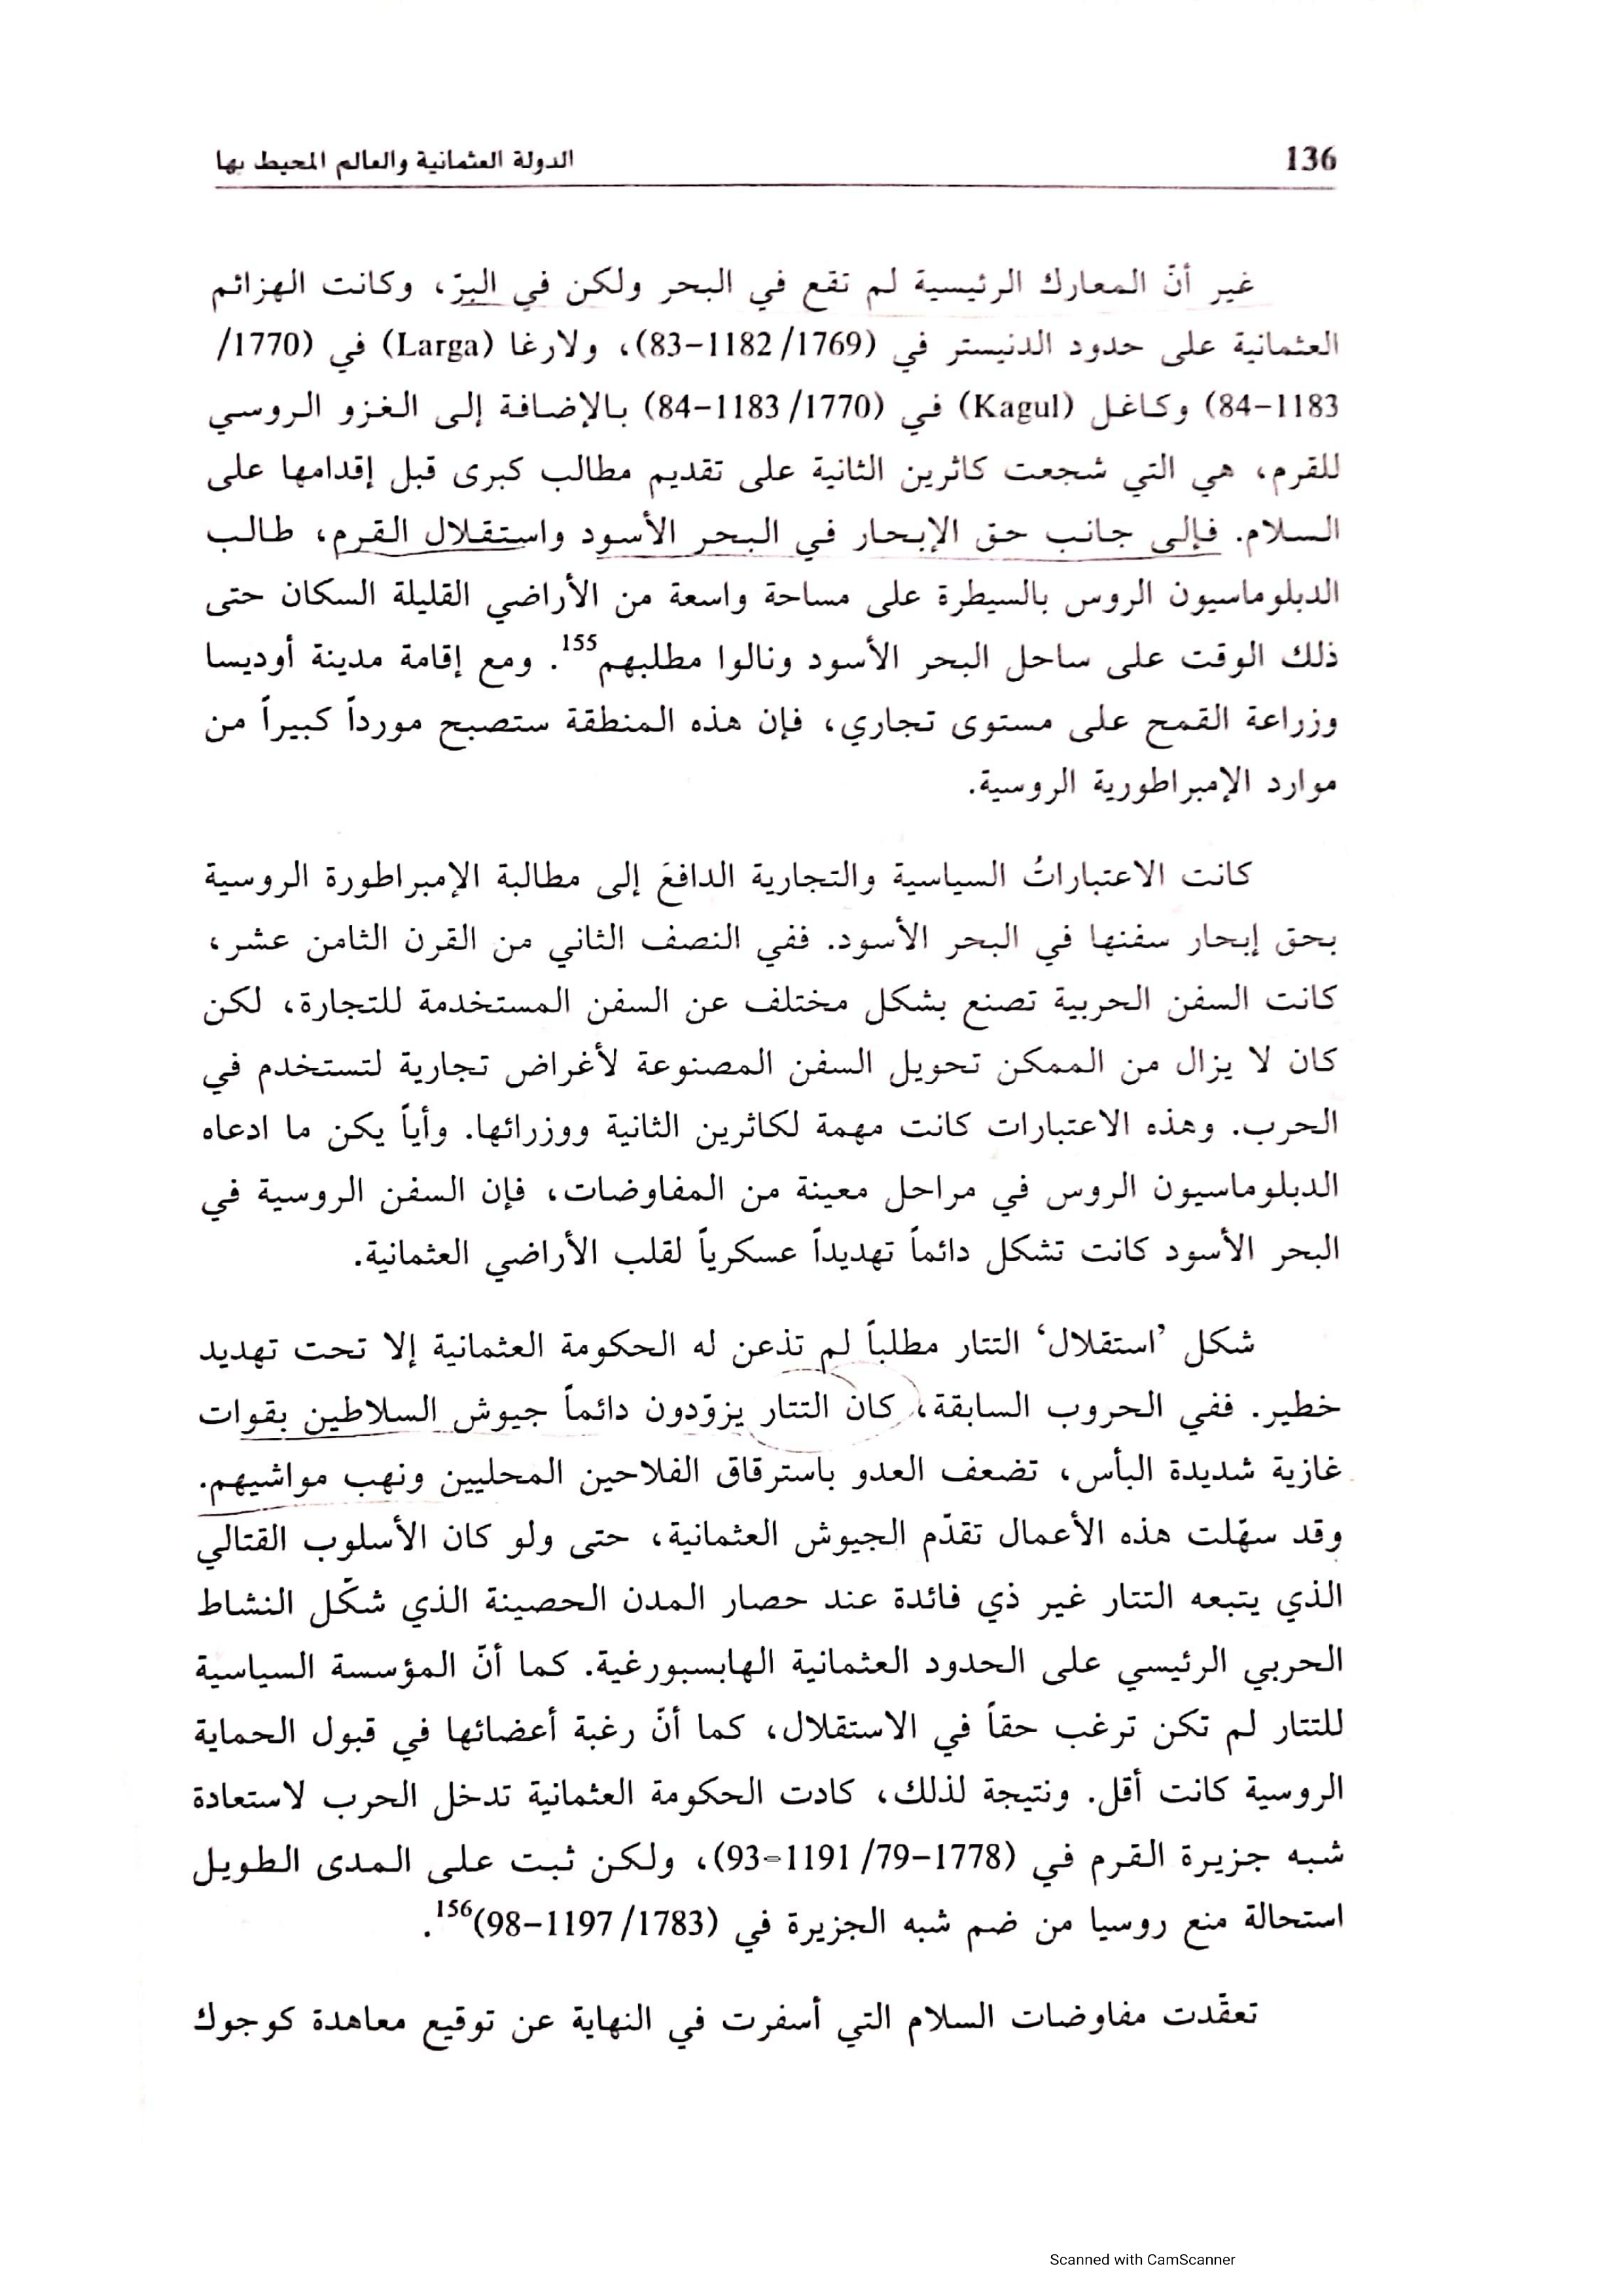 136
الدولة العثمانية والعالم المحيط بها
غير أنّ المعارك الرئيسية لم تقع في البحر ولكن في البرّ، وكانت الهزائم
العثمانية على حدود الدنيستر في (1769/ 1182–83)، ولارغا (Larga) في (1770/
1183–84) وكاغل (Kagul) في (1770/ 1183–84) بالإضافة إلى الغزو الروسي
للقرم، هي التي شجعت كاثرين الثانية على تقديم مطالب كبرى قبل إقدامها على
السلام. فإلى جانب حق الإبحار في البحر الأسود واستقلال القرم، طالب
الدبلوماسيون الروس بالسيطرة على مساحة واسعة من الأراضي القليلة السكان حتى
ذلك الوقت على ساحل البحر الأسود ونالوا مطلبهم155. ومع إقامة مدينة أوديسا
وزراعة القمح على مستوى تجاري، فإن هذه المنطقة ستصبح مورداً كبيراً من
موارد الإمبراطورية الروسية.
كانت الاعتباراتُ السياسية والتجارية الدافعَ إلى مطالبة الإمبراطورة الروسية
بحق إبحار سفنها في البحر الأسود. ففي النصف الثاني من القرن الثامن عشر،
كانت السفن الحربية تصنع بشكل مختلف عن السفن المستخدمة للتجارة، لكن
كان لا يزال من الممكن تحويل السفن المصنوعة لأغراض تجارية لتستخدم في
الحرب. وهذه الاعتبارات كانت مهمة لكاثرين الثانية ووزرائها. وأياً يكن ما ادعاه
الدبلوماسيون الروس في مراحل معينة من المفاوضات، فإن السفن الروسية في
البحر الأسود كانت تشكل دائماً تهديداً عسكرياً لقلب الأراضي العثمانية.
شكل ’استقلال‘ التتار مطلباً لم تذعن له الحكومة العثمانية إلا تحت تهديد
خطير. ففي الحروب السابقة، كان التتار يزوّدون دائماً جيوش السلاطين بقوات
غازية شديدة البأس، تضعف العدو باسترقاق الفلاحين المحليين ونهب مواشيهم.
وقد سهّلت هذه الأعمال تقدّم الجيوش العثمانية، حتى ولو كان الأسلوب القتالي
الذي يتبعه التتار غير ذي فائدة عند حصار المدن الحصينة الذي شكّل النشاط
الحربي الرئيسي على الحدود العثمانية الهابسبورغية. كما أنّ المؤسسة السياسية
للتتار لم تكن ترغب حقاً في الاستقلال، كما أنّ رغبة أعضائها في قبول الحماية
الروسية كانت أقل. ونتيجة لذلك، كادت الحكومة العثمانية تدخل الحرب لاستعادة
شبه جزيرة القرم في (1778–79/ 1191–93)، ولكن ثبت على المدى الطويل
استحالة منع روسيا من ضم شبه الجزيرة في (1783/ 1197–98)156.
تعقّدت مفاوضات السلام التي أسفرت في النهاية عن توقيع معاهدة كوجوك
Scanned with CamScanner